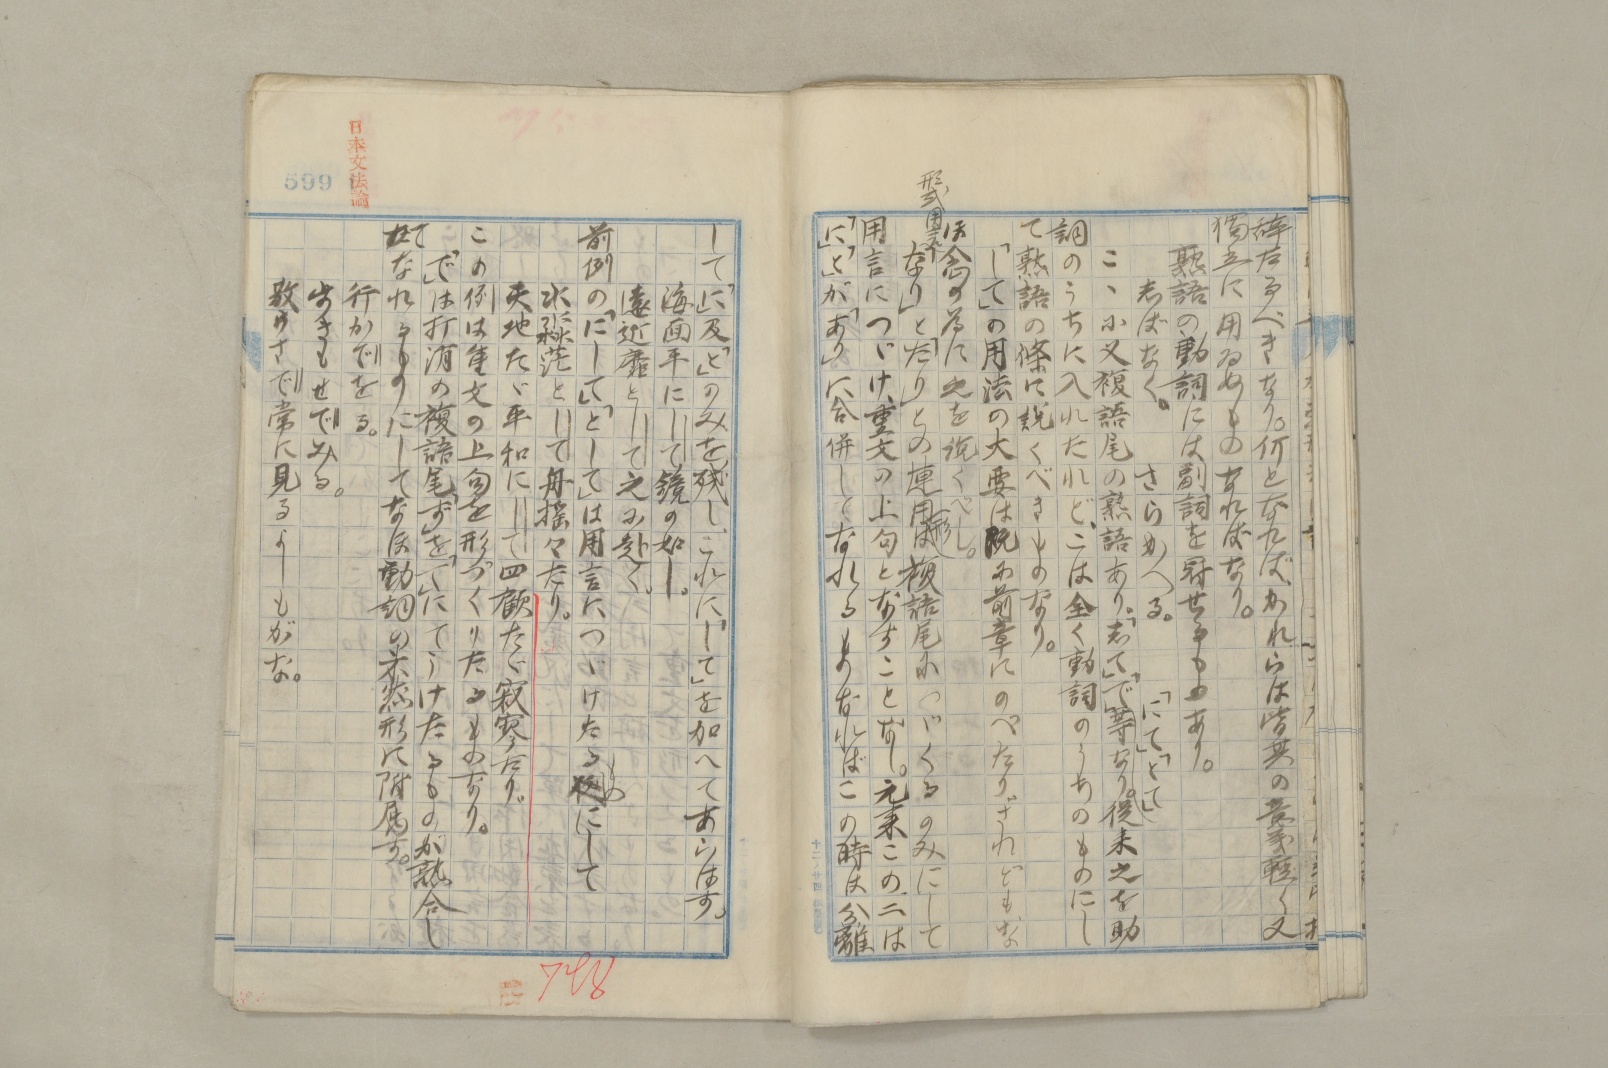 辞なるべきなり。何となれば、かれらは皆其の意義軽く又
獨立に用ゐぬものなればなり。
熟語の動詞には副詞を冠せるもあり。
志ばなく。 さらめへる。 「にて」「とて」
こゝに又複語尾の熟語あり。「志て」「で」等なり。従来之を助
詞のうちに入れたれど、こは全く動詞のうちのものにし
て熟語の條に説くべきものなり。
「して」の用法の大要は既に前章にのべたり。されどもな
ほ念の為に之を説くべし。
形式用言
「なり」と「たり」との連用形は複語尾につゞくるのみにして
用言につゞけ、重文の上句となすことなし。元来この二は
「に」「と」が「あり」に合併してなれるものなればこの時は分離
日本文法論
599
して「に」及「と」のみを残し、これに「して」を加へてあらはす。
海面平にして鏡の如し。
遠近靡として之に赴く。
前例の「にして」「として」は用言につゞけたるものにして
水淼茫として舟揺々たり。
天地たゞ平和にして四顧たゞ寂寥たり。
この例は重文の上句を形づくりたるものなり。
「で」は打消の複語尾「ず」を「て」にてうけたるものが熟合し
てなれるものにしてなほ動詞の未然形に附属す。
行かでをる。
歩きもせでみる。
散りさで常に見るよしもがな。
798